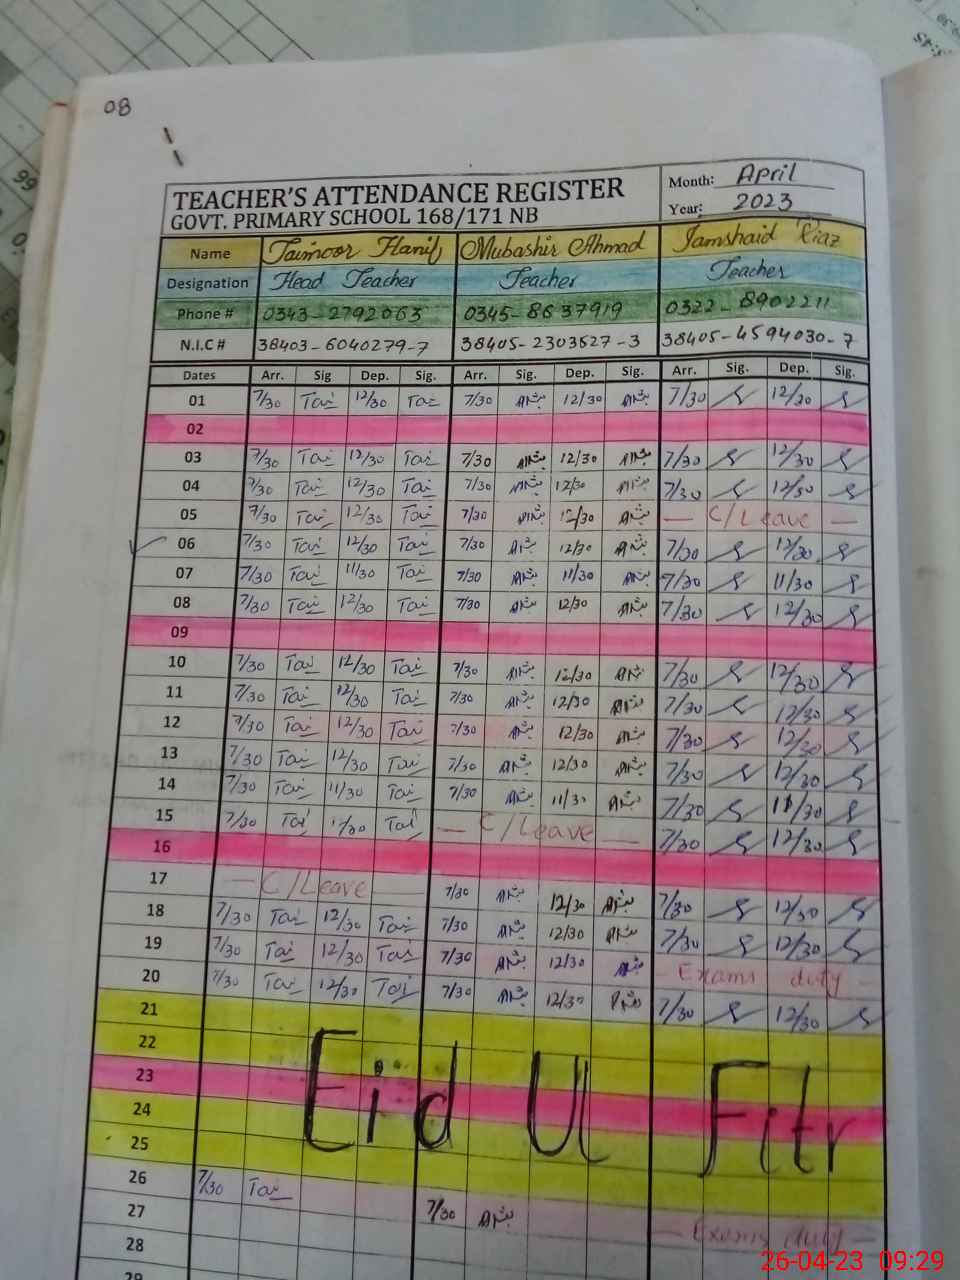 08
TEACHER'S ATTENDANCE REGISTER
GOVT. PRIMARY SCHOOL 168/171 NB
Month: April
Year: 2023
Name Taimoor Hanif Mubashir Ahmad Jamshaid Riaz
Designation Head Teacher Teacher Teacher
Phone # 0343-2792063 0345-8637919 0322-8902211
N.I.C # 38403-6040279-7 38405-2303527-3 38405-4594030-7
Dates Arr. Sig Dep. Sig. Arr. Sig. Dep. Sig. Arr. Sig. Dep. Sig.
01 7/30 Tai 12/30 Tai 7/30 12/30 7/30 12/30
02
03 7/30 Tai 12/30 Tai 7/30 12/30 7/30 12/30
04 7/30 Tai 12/30 Tai 7/30 12/30 7/30 12/30
05 7/30 Tai 12/30 Tai 7/30 12/30 — C/Leave —
06 7/30 Tai 12/30 Tai 7/30 12/30 7/30 12/30
07 7/30 Tai 11/30 Tai 7/30 11/30 7/30 11/30
08 7/30 Tai 12/30 Tai 7/30 12/30 7/30 12/30
09
10 7/30 Tai 12/30 Tai 7/30 12/30 7/30 12/30
11 7/30 Tai 12/30 Tai 7/30 12/30 7/30 12/30
12 7/30 Tai 12/30 Tai 7/30 12/30 7/30 12/30
13 7/30 Tai 12/30 Tai 7/30 12/30 7/30 12/30
14 7/30 Tai 11/30 Tai 7/30 11/30 7/30 11/30
15 7/30 Tai 12/30 Tai — C/Leave — 7/30 12/30
16
17 — C/Leave — 7/30 12/30 7/30 12/30
18 7/30 Tai 12/30 Tai 7/30 12/30 7/30 12/30
19 7/30 Tai 12/30 Tai 7/30 12/30 — Exams duty —
20 7/30 Tai 12/30 Tai 7/30 12/30 7/30 12/30
21
22
Eid Ul Fitr
23
24
25
26 7/30 Tai 7/30 — Exams duty —
27
28
29
26-04-23 09:29